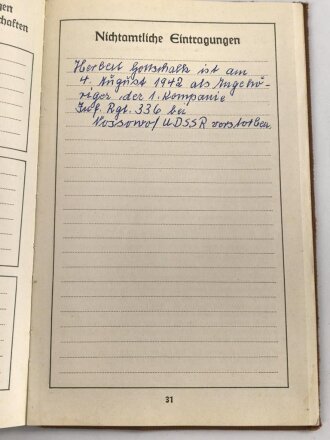 gen
schaften
Nichtamtliche Eintragungen
Herbert Gottschalk ist am
4. August 1942 als Angehö-
riger der 1. Kompanie
Inf. Rgt. 336 bei
UDSSR verstorben.
31